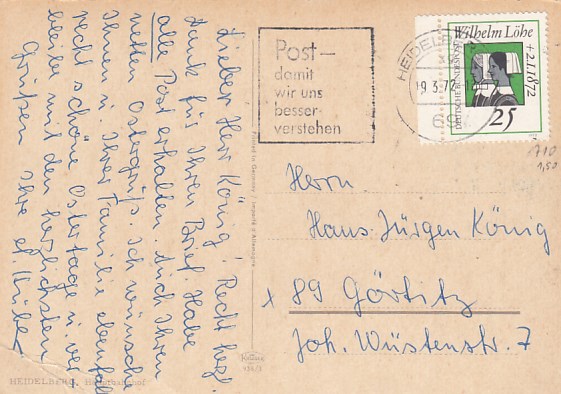 Lieber Herr König! Recht herzl.
Dank für Ihren Brief. Habe
alle Post erhalten. Auch Ihren
netten Ostergruß. Ich wünsche
Ihnen u. Ihrer Familie ebenfalls
recht schöne Ostertage u. ver-
bleibe mit den herzlichsten
Grüßen Ihre
Post–
damit
wir uns
besser-
verstehen
HEIDELBERG
9.3.72
69
Wilhelm Löhe
+2.1.1872
DEUTSCHE BUNDESPOST
25
710
1,50
Herrn
Hans-Jürgen König
x 89 Görlitz
Joh. Wüstenstr. 7
HEIDELBERG, Hauptbahnhof